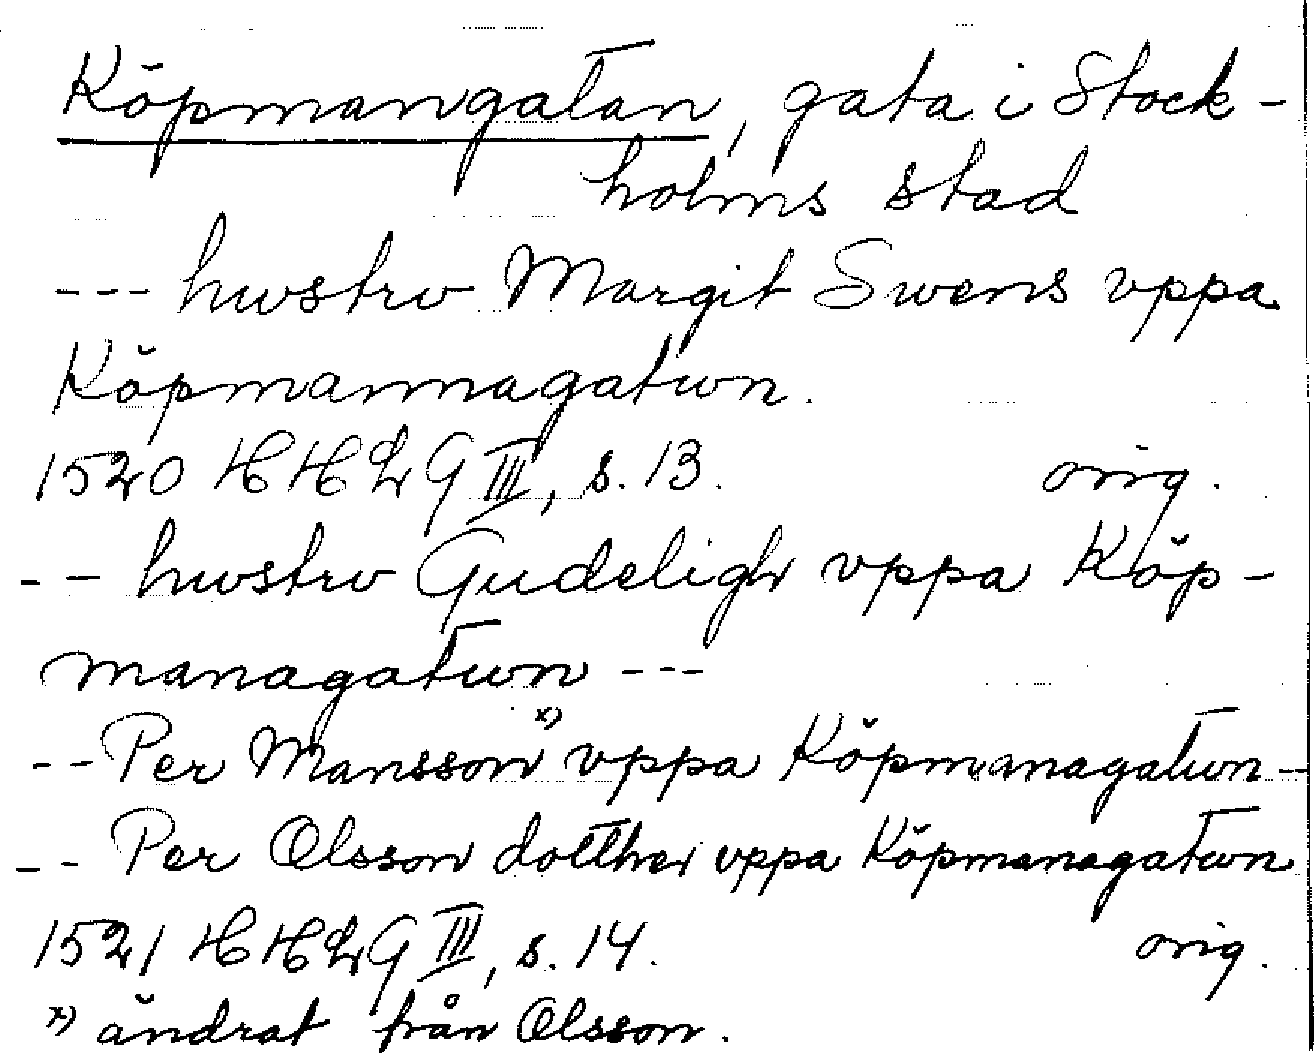 Köpmangatan, gata i Stock-
holms stad
--- hwstrv Margit Swens vppa
Köpmannagatwn.
1520 HHLG III, s. 13. orig.
-- hwstrv Gudeligh vppa Köp-
managatwn ---
-- Per Mansson x) vppa Köpmanagatwn -
-- Per Olsson dotther vppa Köpmanagatwn
1521 HHLG III, s. 14. orig.
x) ändrat från Olsson.